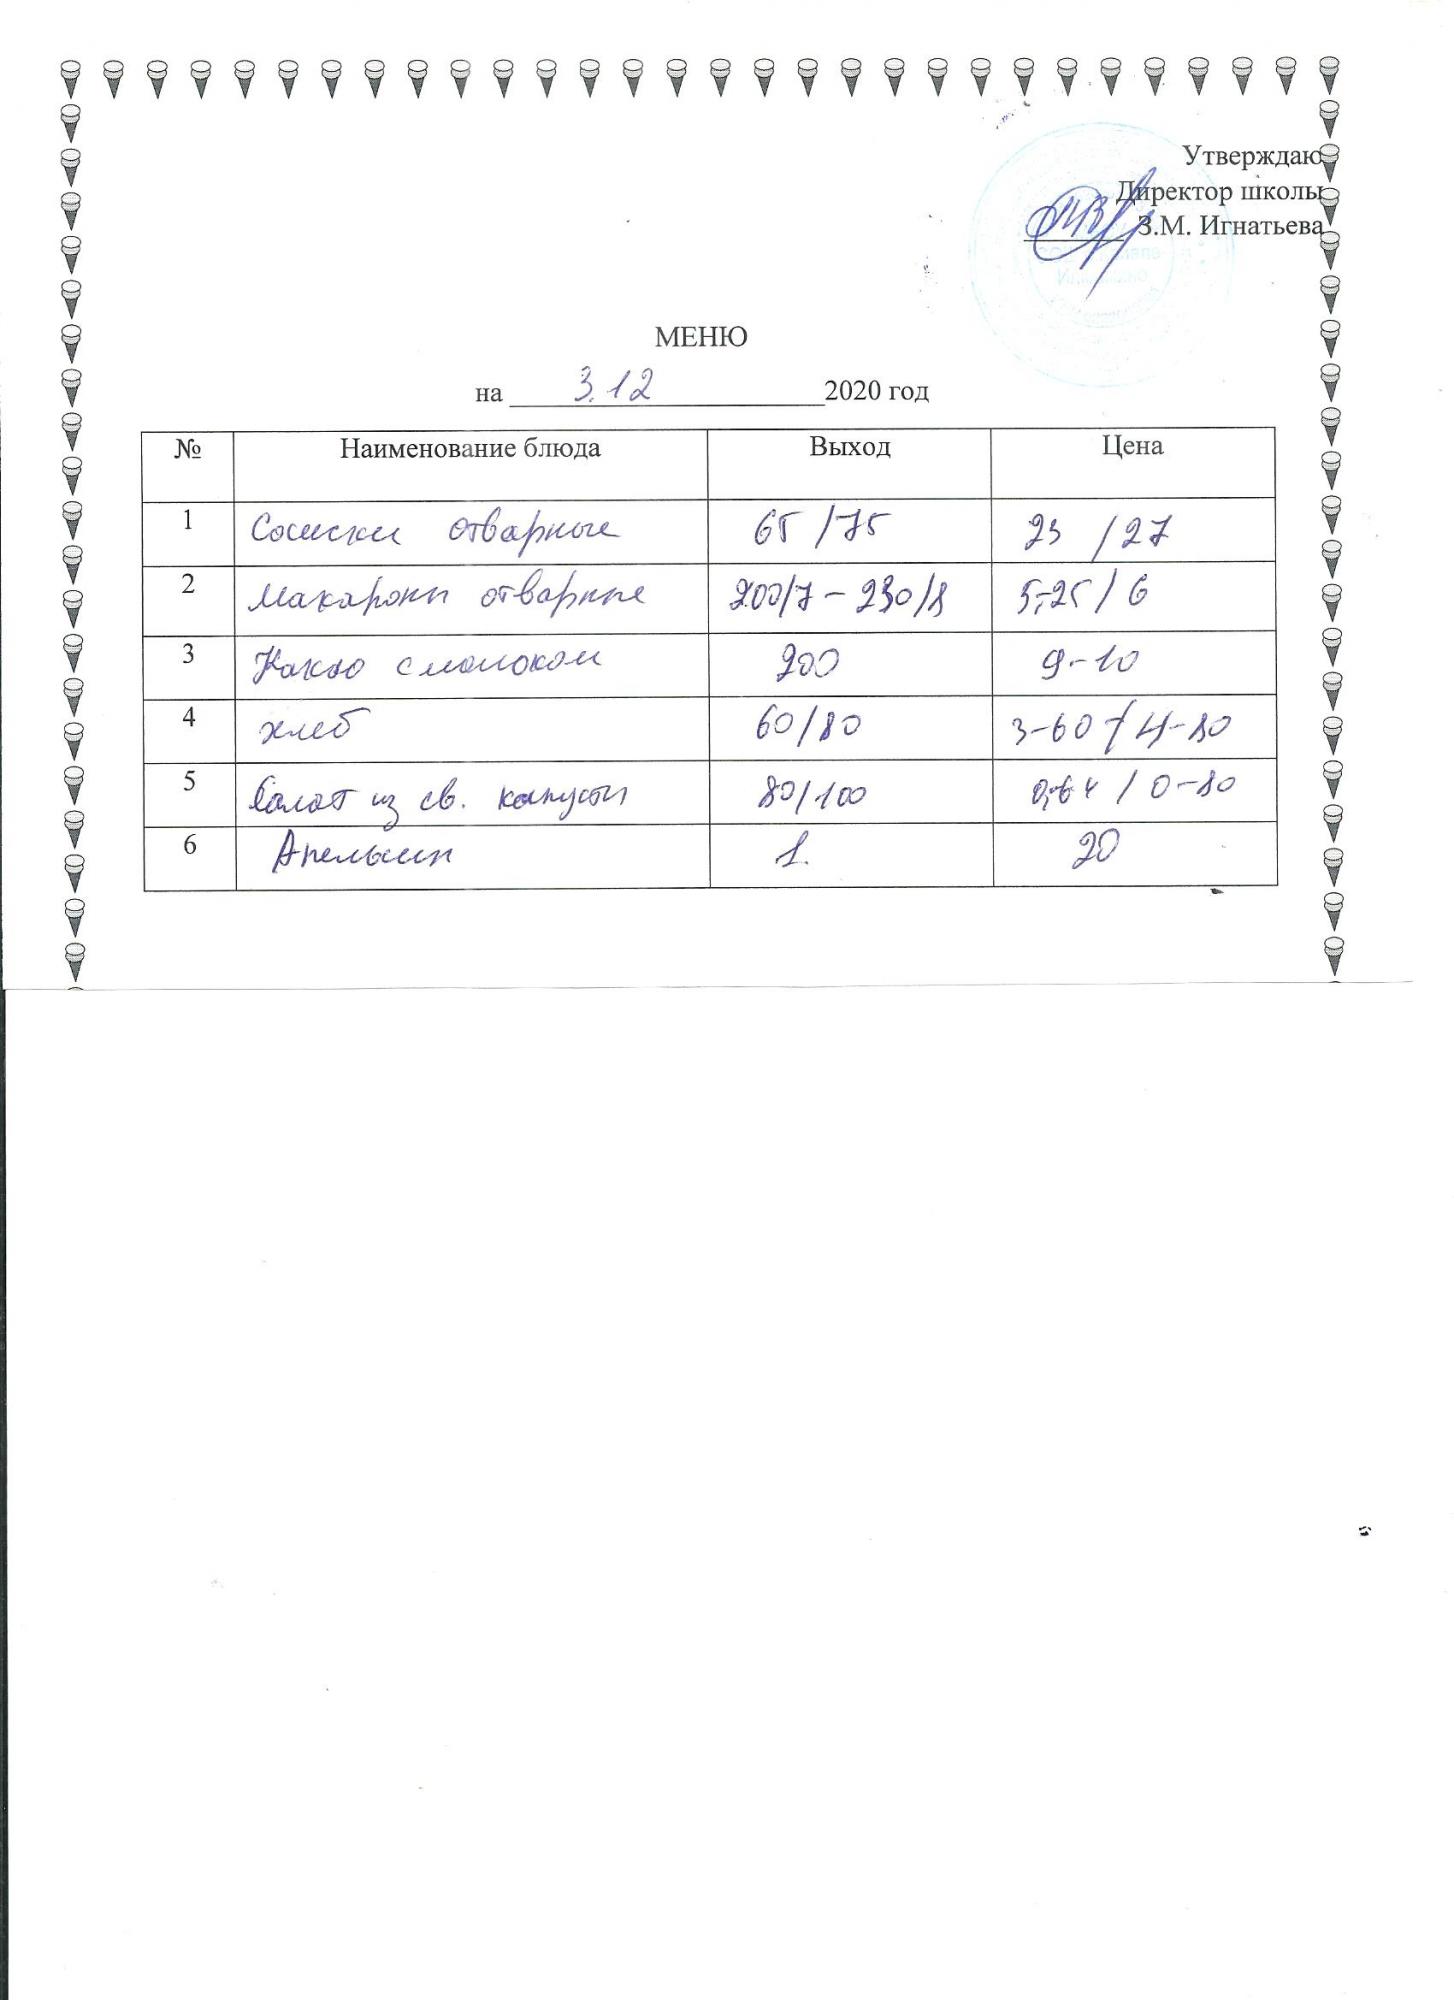 Утверждаю
Директор школы
З.М. Игнатьева
МЕНЮ
на 3.12 2020 год
№ Наименование блюда Выход Цена
1 Сосиски отварные 65/75 23/27
2 Макароны отварные 200/7-230/8 5,25/6
3 Какао с молоком 200 9-10
4 хлеб 60/80 3-60/4-80
5 Салат из св. капусты 80/100 0,64/0-80
6 Апельсин 1. 20